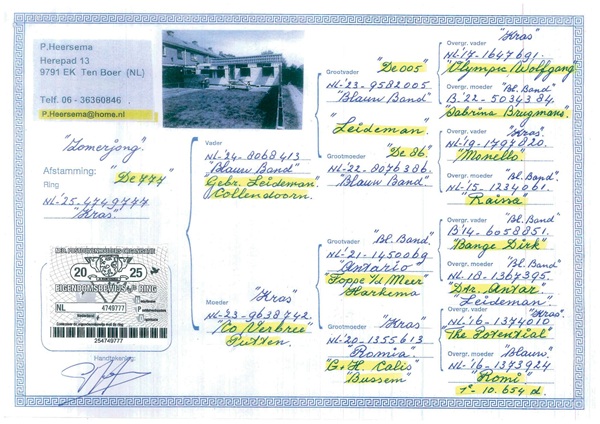 P.Heersema
Herepad 13
9791 EK Ten Boer (NL)
Telf. 06 - 36360846
P.Heersema@home.nl
"Zomerjong."
Afstamming: "De 777"
Ring
NL-'25-4749777
"Kras"
NED. POSTDUIVENHOUDERS-ORGANISATIE
20 25
EIGENDOMSBEWIJS RING
NL 4749777
254749777
Handtekening:
Vader
NL-'24-8068413
"Blauw Band"
Gebr. Leideman
Collendoorn.
Moeder "Kras"
NL-'23-9638742.
"Co Verbree"
Putten.
Grootvader "De 005"
NL-'23-9582005
"Blauw Band"
"Leideman"
Grootmoeder "De 86"
NL-'22-8076386.
"Blauw Band"
Grootvader "Bl. Band"
NL-'21-1450069
"Antario"
Foppe v/d Meer
Harkema
Grootmoeder "Kras"
NL-'20-1355613
"Romia"
"G.H. Calis"
"Bussem"
Overgr. vader "Kras"
NL-'17-1647691.
"Olympic Wolfgang"
Overgr. moeder "Bl. Band"
B.'22-5034384.
"Sabrina Brugmans"
Overgr. vader "Kras"
NL-'19-1797820
"Monello"
Overgr. moeder "Bl. Band"
NL-'15-1234061.
"Raissa"
Overgr. vader "Bl. Band"
B'14-6058851.
"Bange Dirk"
Overgr. moeder "Bl. Band"
NL-18-1367395.
"Dtr. Antar."
"Leideman"
Overgr. vader "Kras"
NL-'16-1374010
"The Potential"
Overgr. moeder "Blauw"
NL-'16-1373924
"Romi"
1e-10.654 d.